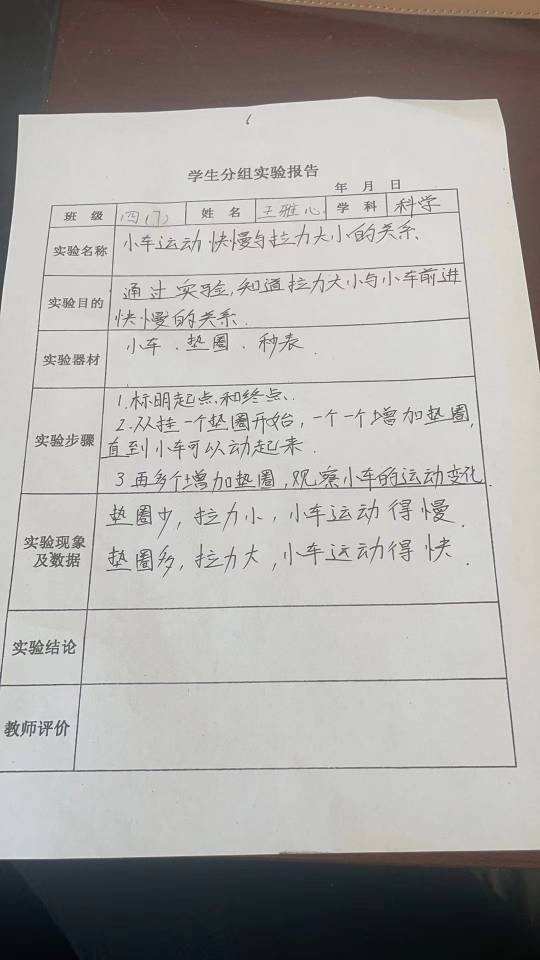 6
学生分组实验报告
年 月 日
班 级 四(7) 姓 名 王雅心 学 科 科学
实验名称 小车运动快慢与拉力大小的关系.
实验目的 通过实验,知道拉力大小与小车前进
快慢的关系.
实验器材 小车、垫圈、秒表.
实验步骤 1.标明起点和终点.
2.从挂一个垫圈开始,一个一个增加垫圈,
直到小车可以动起来.
3 再多个增加垫圈,观察小车的运动变化.
实验现象及数据 垫圈少,拉力小,小车运动得慢.
垫圈多,拉力大,小车运动得快.
实验结论
教师评价